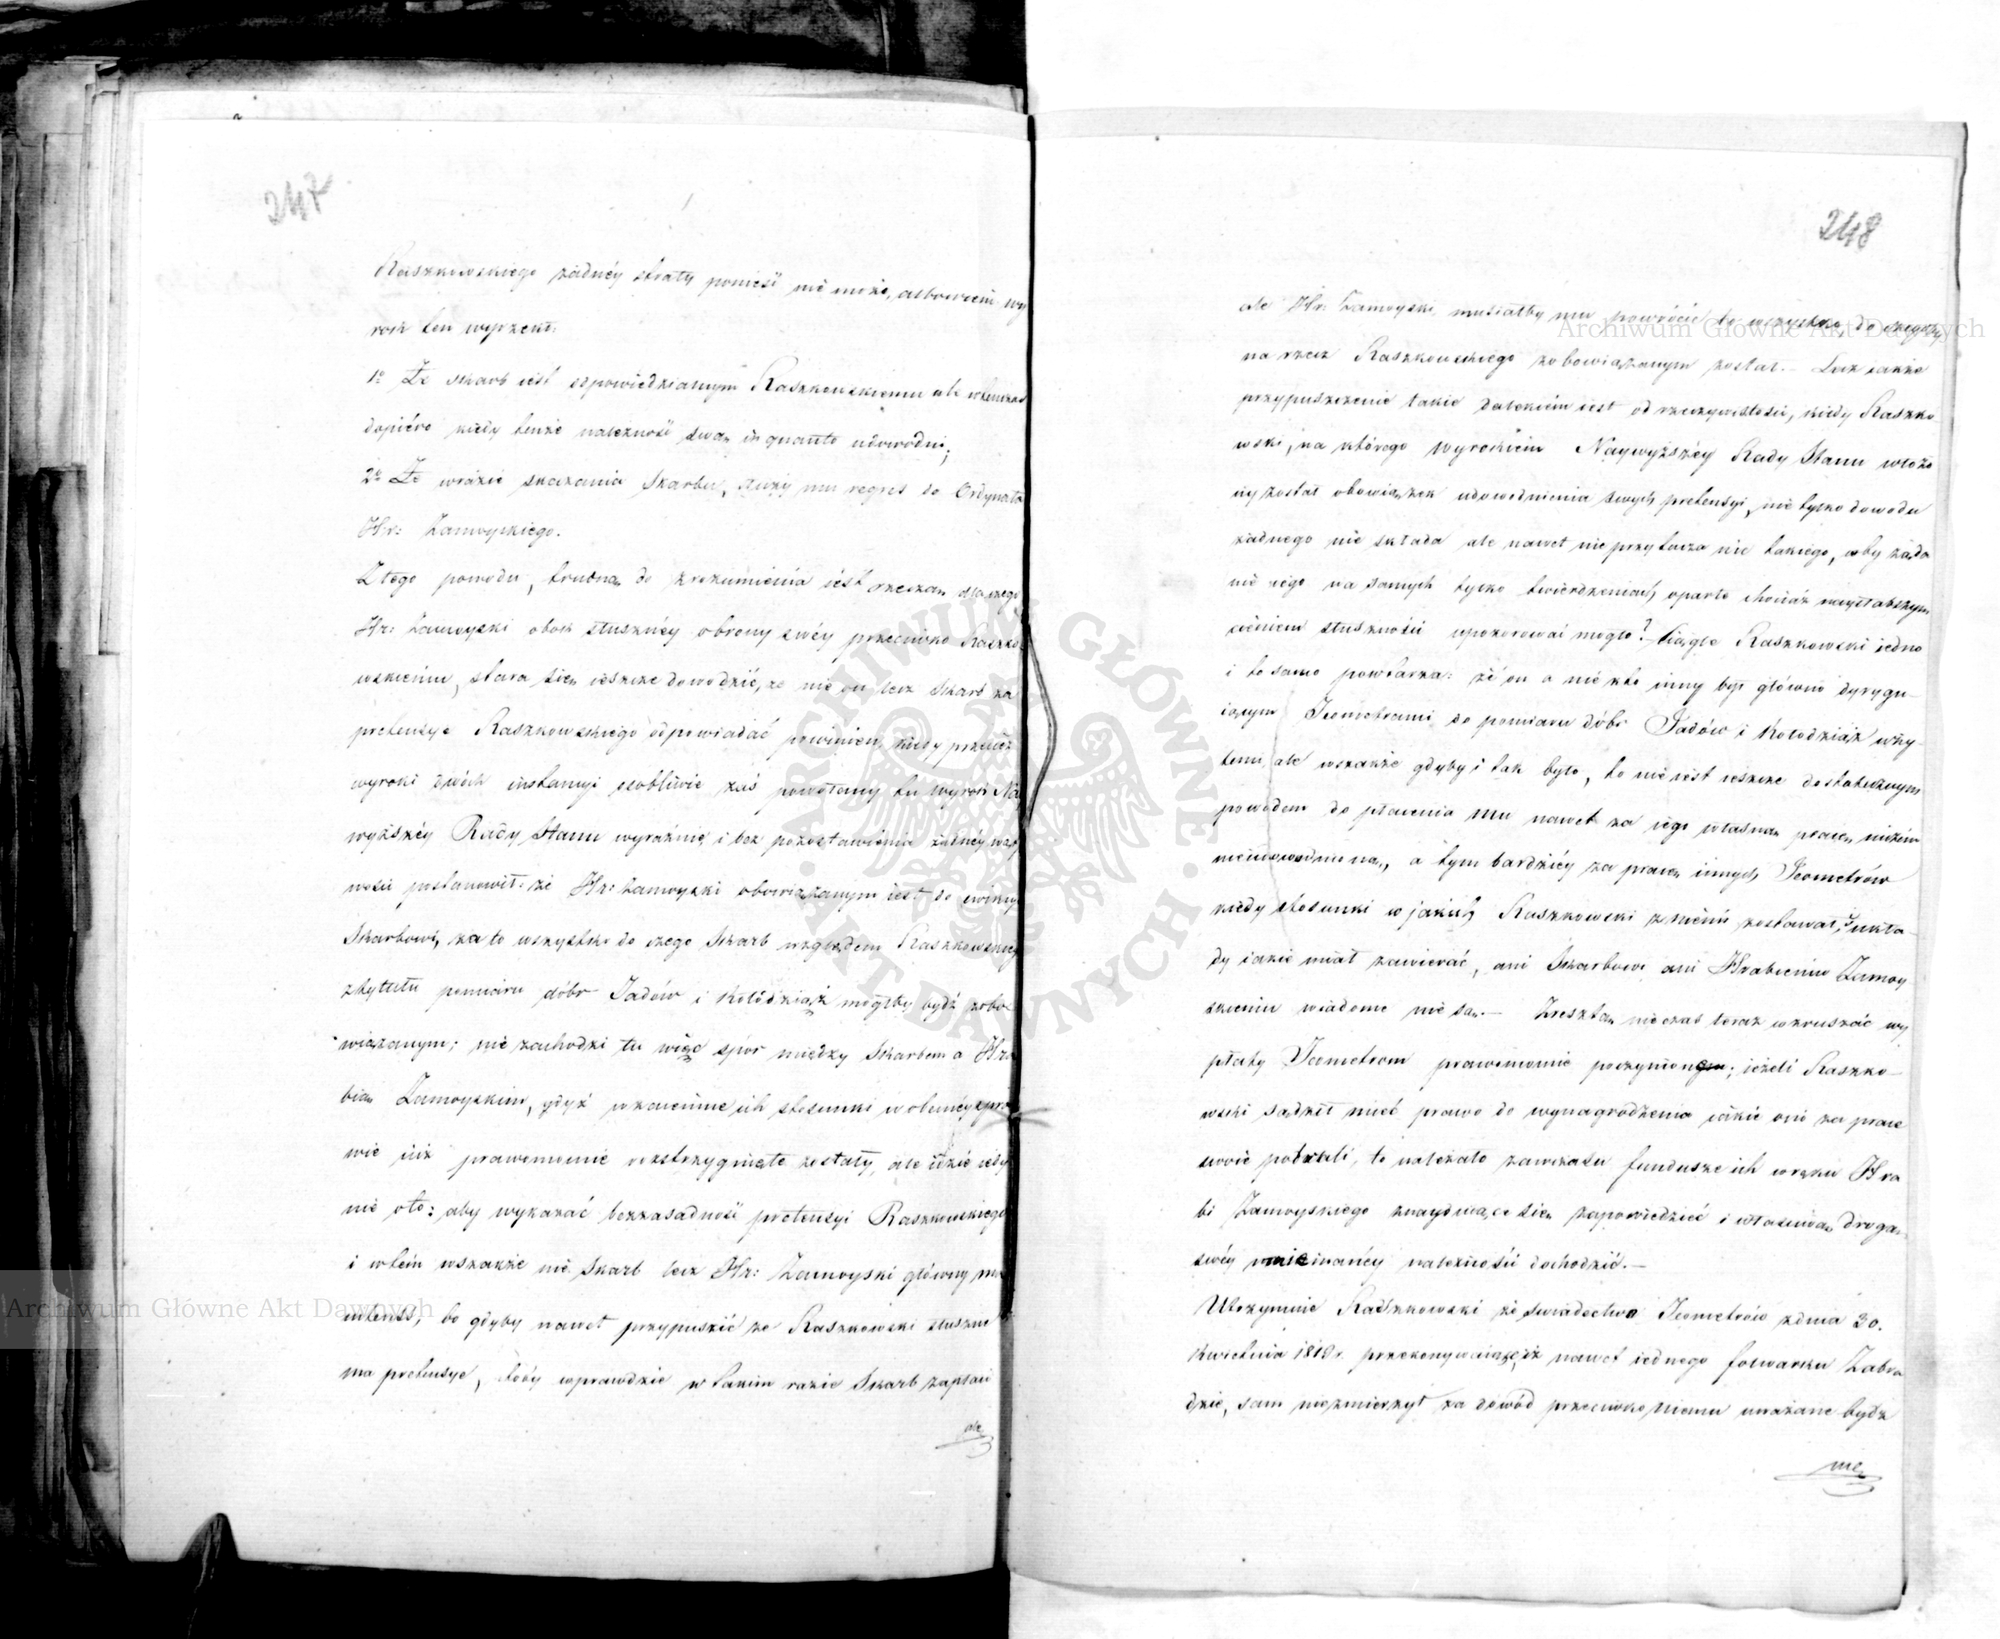 247
Raszkowskiego żadnéy straty ponieść nie może, albowiem wy
rok ten wyrzekł:
1º Że skarb iest odpowiedzianym Raszkowskiemu ale wtenczas
dopiéro kiedy tenże należność swą in quanto udowodni;
2º Że wrazie skazania Skarbu, służy mu regres do Ordynata
Hr: Zamoyskiego.
Z tego powodu, trudną do zrozumienia iest rzeczą dlaczego
Hr: Zamoyski obok słusznéy obrony swéy przeciwko Raszko
wskiemu, stara się ieszcze dowodzić, że nie on lecz Skarb za
pretensye Raszkowskiego odpowiadać powinien, kiedy przecież
wyroki dwóch instancyi osobliwie zaś powołany tu wyrok Na
wyższéy Rady Stanu wyraźnie i bez pozostawienia żadnéy wąt
wości postanowił: że Hr: Zamoyski obowiązanym iest do ewikcyi
Skarbowi, za to wszystko do czego Skarb względem Raszkowskiego
z tytułu pomiaru dóbr Jadów i Kołodziąż mógłby bydź zobo
wiązanym; nie zachodzi tu więc spór między Skarbem a Hra
bią Zamoyskim, gdyż wzaiemne ich stosunki w obecnéy spra
wie iuż prawomocnie rozstrzygnięte zostały, ale idzie iedy
nie oto: aby wykazać bezzasadność pretensyi Raszkowskiego
i wtém wszakże nie Skarb lecz Hr: Zamoyski główny ma
interess, bo gdyby nawet przypuścić że Raszkowski słuszne
ma pretensye, toby wprawdzie w takim razie Skarb zapłacił
ale
248
ale Hr: Zamoyski musiałby mu powrócić to wszystko, do czegoby
na rzecz Raszkowskiego zobowiązanym został. – Lecz iakże
przypuszczenie takie dalekiém iest od rzeczywistości, kiedy Raszko
wski, na którego wyrokiem Naywyższéy Rady Stanu włożo
ny został obowiązek udowodnienia swych pretensyi, nie tylko dowodu
żadnego nie składa ale nawet nie przytacza nic takiego, coby żąda
nie iego na samych tylko twierdzeniach oparte chociaż naysłabszym
cieniem słuszności upozorować mogło? – Ciągle Raszkowski iedno
i to samo powtarza: że on a nie kto inny był głównie dyrygu-
iącym Jeometrami do pomiaru dóbr Jadów i Kołodziąż uży-
temi, ale wszakże gdyby i tak było, to nie iest ieszcze dostatecznym
powodem do płacenia mu nawet za iego własną pracę niczém
nieudowodnioną, a tym bardziéy za pracę innych Jeometrów
kiedy stosunki w jakich Raszkowski z niemi zostawał, i ukła
dy iakie miał zawierać, ani Skarbowi ani Hrabiemu Zamoy
skiemu wiadome nie są. – Zresztą nie czas teraz wzruszać wy
płaty Jeometrom prawomocnie poczynione; ieżeli Raszko-
wski sądził mieć prawo do wynagrodzenia iakie oni za prace
swoie pobrali, to należało zawczasu fundusze ich w ręku Hra
bi Zamoyskiego znayduiące się zapowiedzieć i właściwą drogą
swéy mniemanéy należności dochodzić. –
Utrzymuie Raszkowski że świadectwo Jeometrów z dnia 30.
Kwietnia 1819 r. przekonywaiące, iż nawet iednego folwarku Zabra
dzie, sam niezmierzył za dowód przeciwko niemu uważane bydź
nie